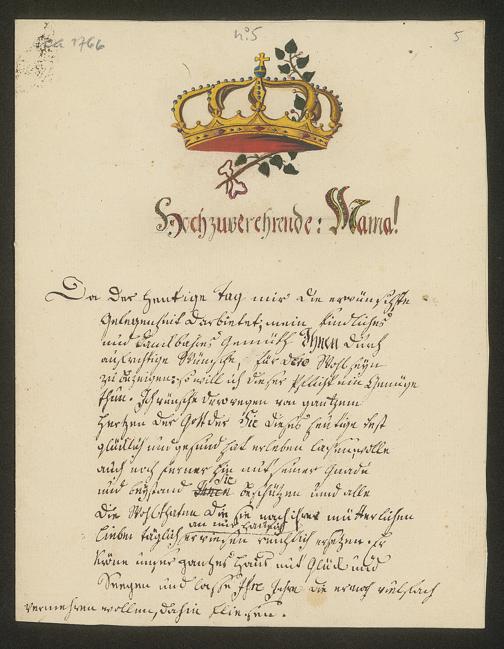 ca 1766
n°5
5
Hochzuverehrende: Mama!
Da der heutige Tag mir die erwünschte
Gelegenheit darbietet, mein kindliches
und dankbares Gemüth Ihnen durch
aufrichtige Wünsche für dero Wohlseyn
zu bezeigen: so will ich dieser Pflicht ein Genüge
thun. Ich wünsche derowegen von gantzem
Hertzen der Gott der Sie dieses heutige Fest
glücklich und gesund hat erleben lassen, wolle
auch noch ferner hin mit seiner Gnade
Sie
und beystand Ihnen beschützen und alle
die Wohlthaten die sie nach ihrer mütterlichen
an mir
lieben täglich erwiesen reichlich ersetzen. Er
kröne unser gantzes Haus mit Glück und
Seegen und lasse Ihre Jahre die er noch vielfach
vermehren wolle, dahin fliesen.